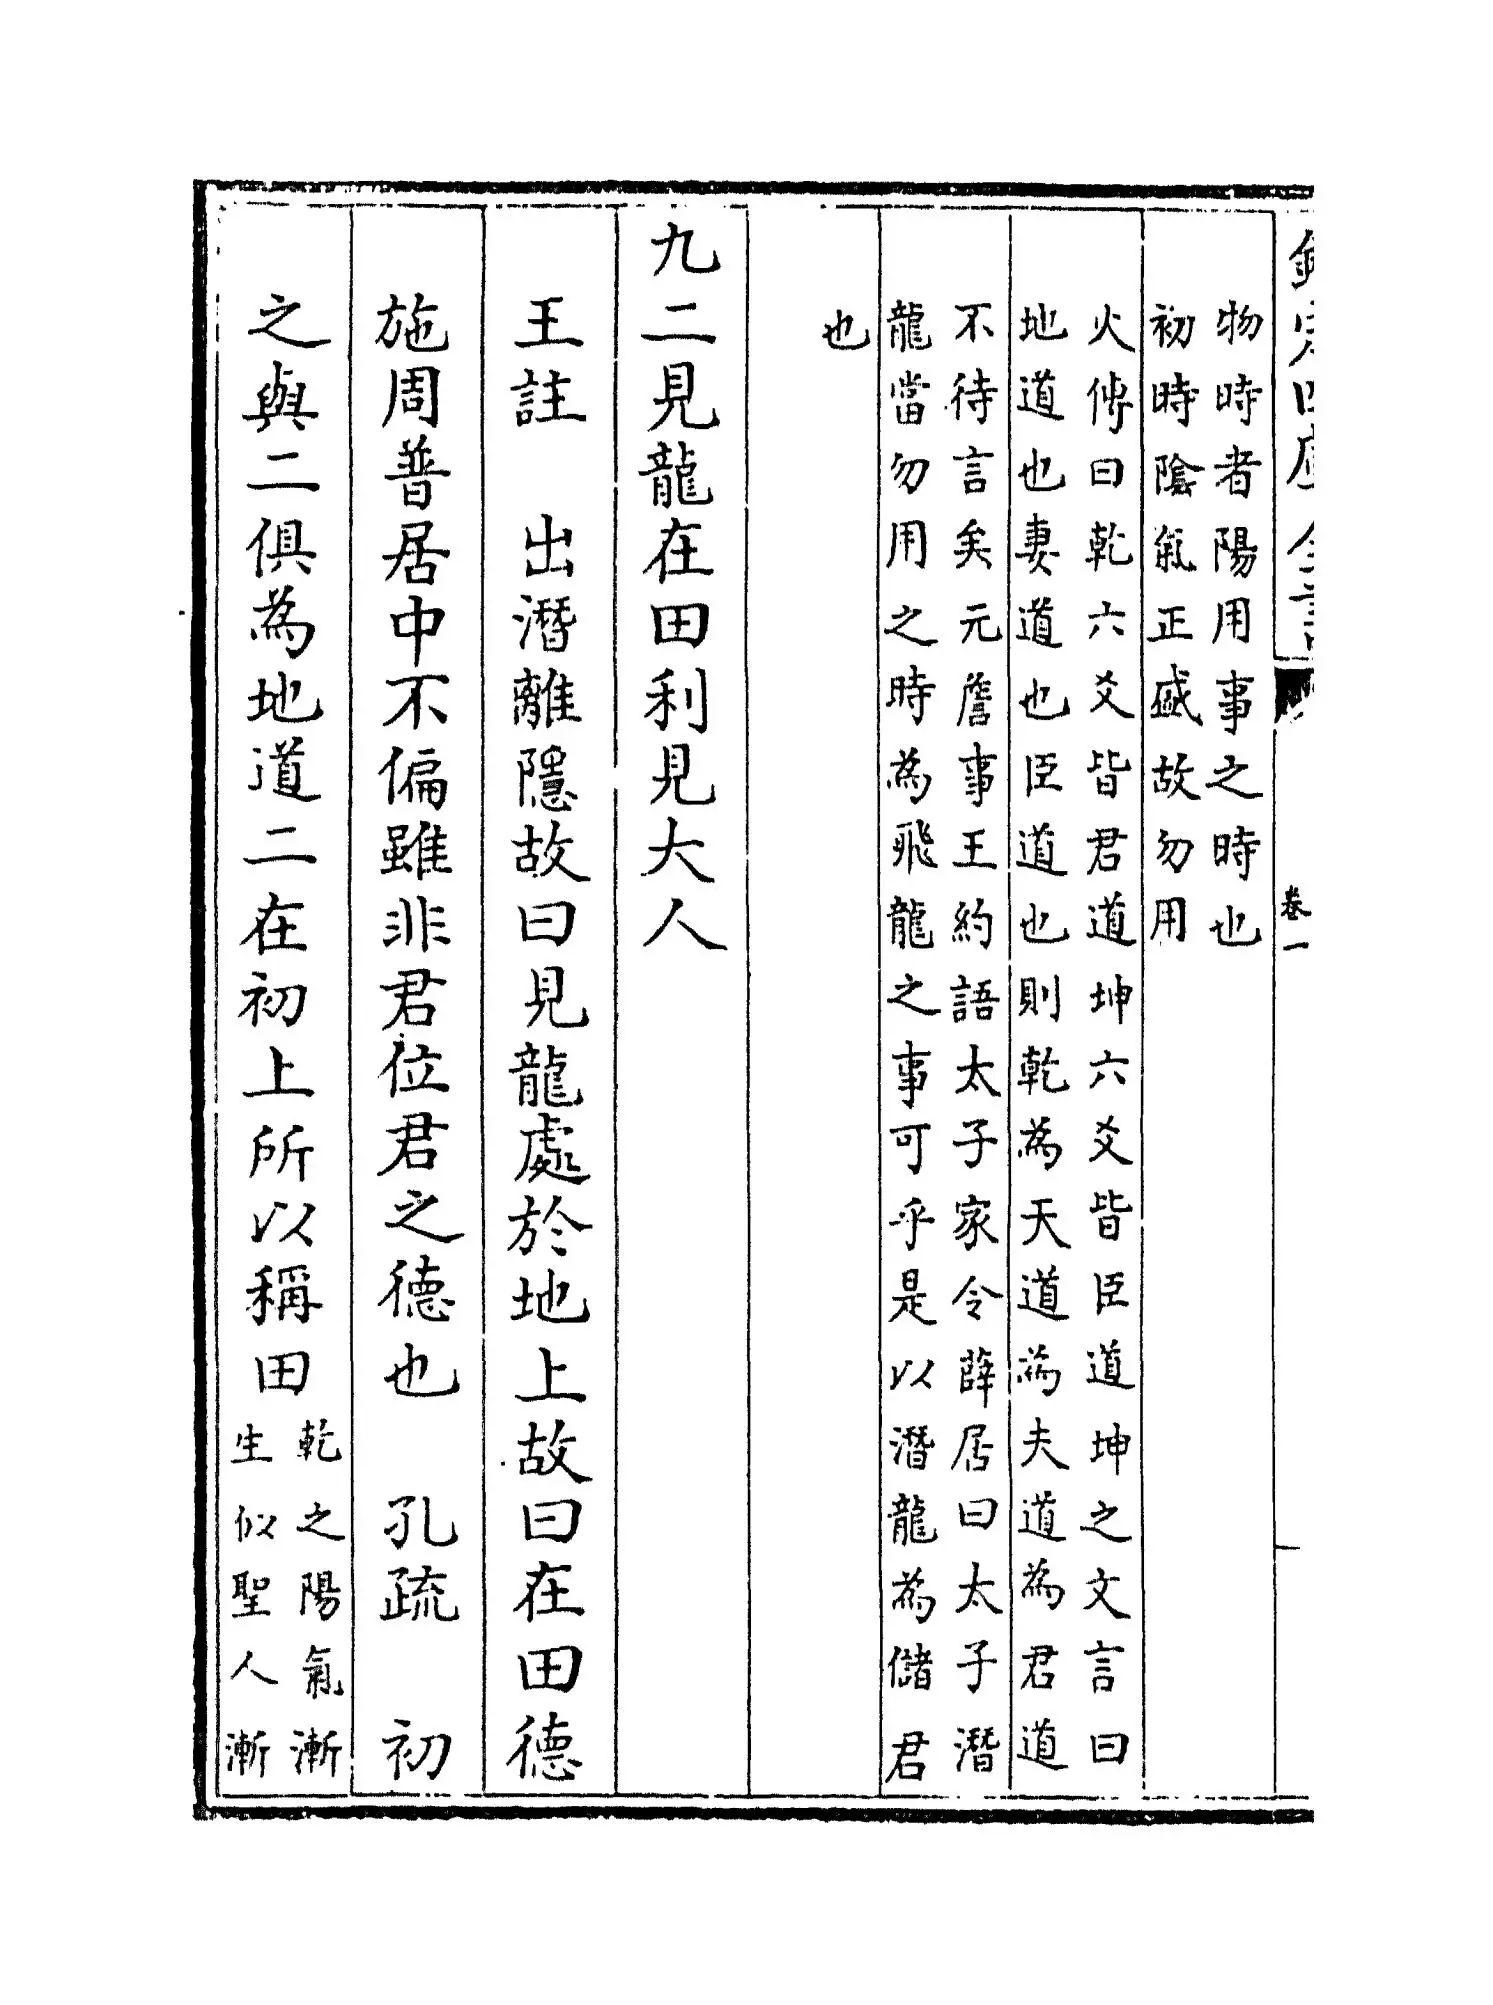 欽定四庫全書
卷一
物時者陽用事之時也
初時陰氣正盛故勿用
火傳曰乾六爻皆君道坤六爻皆臣道坤之文言曰
地道也妻道也臣道也則乾為天道為夫道為君道
不待言矣元詹事王約語太子家令薛居曰太子潛
龍當勿用之時為飛龍之事可乎是以潛龍為儲君
也
九二見龍在田利見大人
王註　出潛離隱故曰見龍處於地上故曰在田德
施周普居中不偏雖非君位君之德也　孔疏　初
之與二俱為地道二在初上所以稱田
乾之陽氣漸
生似聖人漸